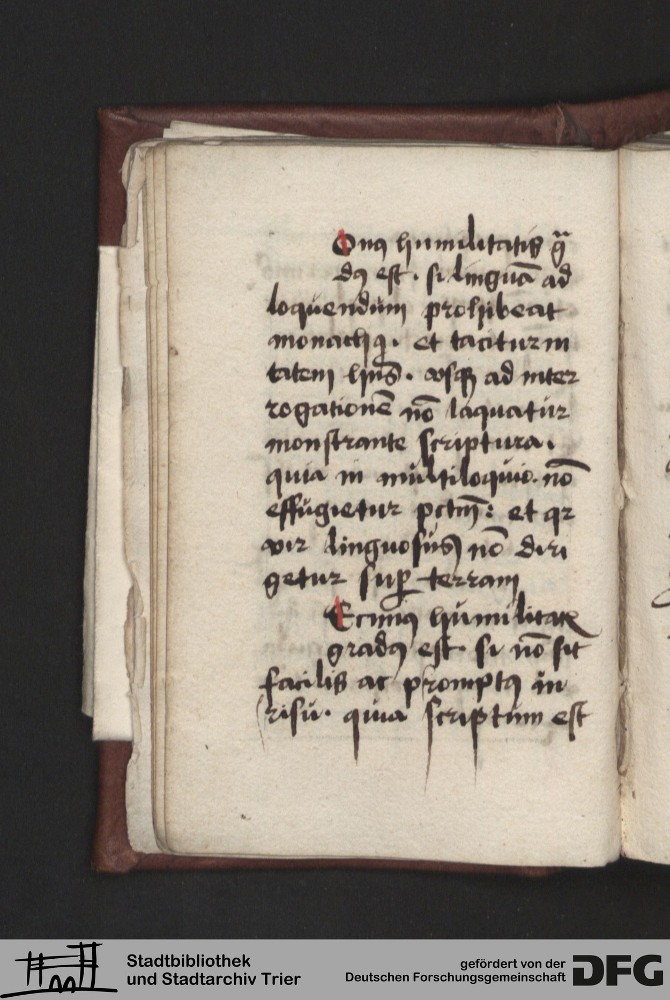 Onꝰ humilitatis gͣ
dꝰ est . si linguā ad
loquendum prohibeat
monachꝰ . et taciturni
tatem hn̄s . vsqꝫ ad inter
rogationē nō laquatur
monstrante scriptura .
quia in multiloquio . nō
effugietur pctm̄ : et qz
vir linguosus nō diri
getur suꝑ terram
Ecimꝰ humilitatꝭ
gradꝰ est . si nō sit
facilis ac promptꝰ in
risu . quia scriptum est
Stadtbibliothek
und Stadtarchiv Trier
gefördert von der
Deutschen Forschungsgemeinschaft
DFG